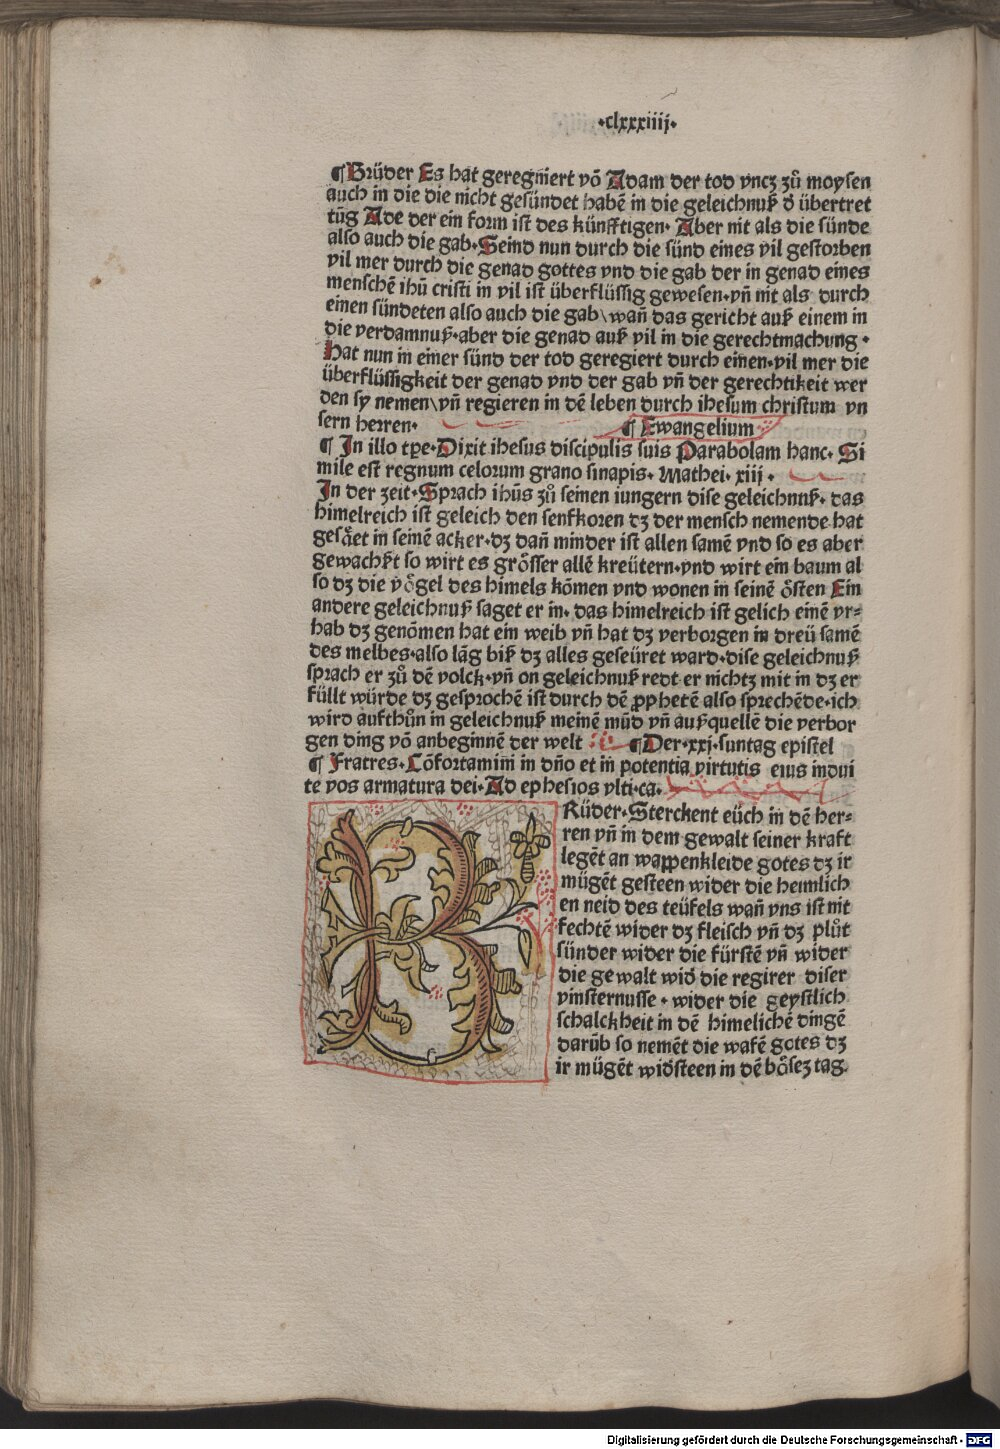 ·clxxxiiij·
¶Brüder Es hat geregniert võ Adam der tod vncz zů moysen
auch in die die nicht gesündet habẽ in die geleichnuß d̕ übertret
tũg Ade der ein form ist des künfftigen· Aber nit als die sünde
also auch die gab·Seind nun durch die sünd eines vil gestorben
vil mer durch die genad gottes vnd die gab der in genad eines
menschẽ ihũ cristi in vil ist überflüssig gewesen·vñ nit als durch
einen sündeten also auch die gab\wañ das gericht auß einem in
die verdamnuß·aber die genad auß vil in die gerechtmachung·
Hat nun in einer sünd der tod geregiert durch einen·vil mer die
überflüssigkeit der genad vnd der gab vñ der gerechtikeit wer
den sy nemen\vñ regieren in dẽ leben durch ihesum christum vn
sern herren· ¶ Ewangelium·
¶ In illo tpe·Dixit ihesus discipulis suis Parabolam hanc· Si
mile est regnum celorum grano sinapis· Mathei· xiij·
In der zeit·Sprach ihũs zů seinen iungern dise geleichnnß· das
himelreich ist geleich den senfkoren dz der mensch nemende hat
gesäet in seinẽ acker·dz dañ minder ist allen samẽ vnd so es aber
gewachßt so wirt es grösser allẽ kreütern·vnd wirt ein baum al
so dz die vögel des himels kõmen vnd wonen in seinẽ östen Ein
andere geleichnuß saget er in· das himelreich ist gelich einẽ vr⸗
hab dz genõmen hat ein weib vñ hat dz verborgen in dreü samẽ
des melbes·also lãg biß dz alles geseüret ward·dise geleichnuß
sprach er zů dẽ volck·vñ on geleichnuß redt er nichtz mit in dz er
füllt würde dz gesprochẽ ist durch dẽ ꝓphetẽ also sprechẽde·ich
wird aufthůn in geleichnuß meinẽ mũd vñ außquellẽ die verbor
gen ding võ anbeginnẽ der welt ¶Der·xxj·suntag epistel
¶ Fratres·Cõfortamini in dño et in potentia virtutis eius indui
te vos armatura dei·Ad ephesios vlti·ca·
BRüder·Sterckent eüch in dẽ her⸗
ren vñ in dem gewalt seiner kraft
legẽt an wappenkleide gotes dz ir
mügẽt gesteen wider die heimlich
en neid des teüfels wañ vns ist nit
fechtẽ wider dz fleisch vñ dz plůt
sünder wider die fürstẽ vñ wider
die gewalt wid̕ die regirer diser
vinsternusse·wider die geystlich
schalckheit in dẽ himelichẽ dingẽ
darüb so nemẽt die wafẽ gotes dz
ir mügẽt wid̕steen in dẽ bösez tag
Digitalisierung gefördert durch die Deutsche Forschungsgemeinschaft - DFG